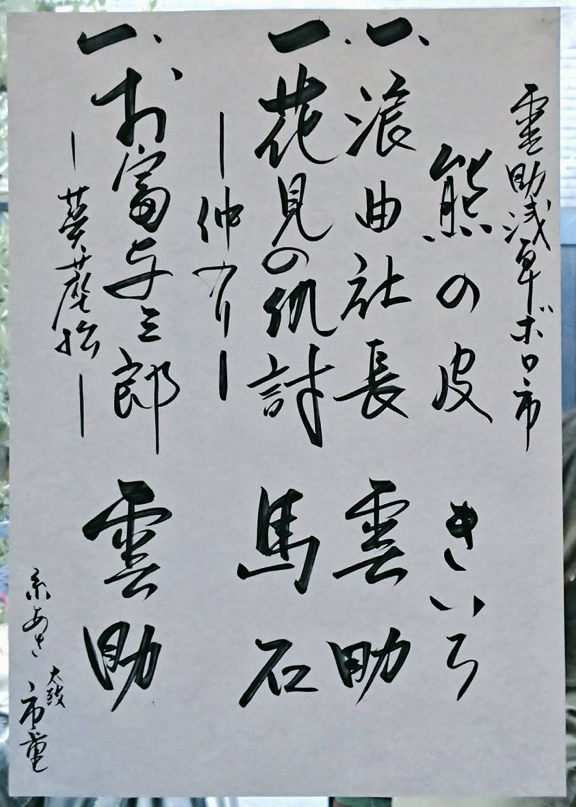 雲助浅草ボロ市
熊の皮 きいち
一、浪曲社長 雲助
一、花見の仇討 馬石
―仲入り―
一、お富与三郎 雲助
―茣蓙松―
太鼓 市童